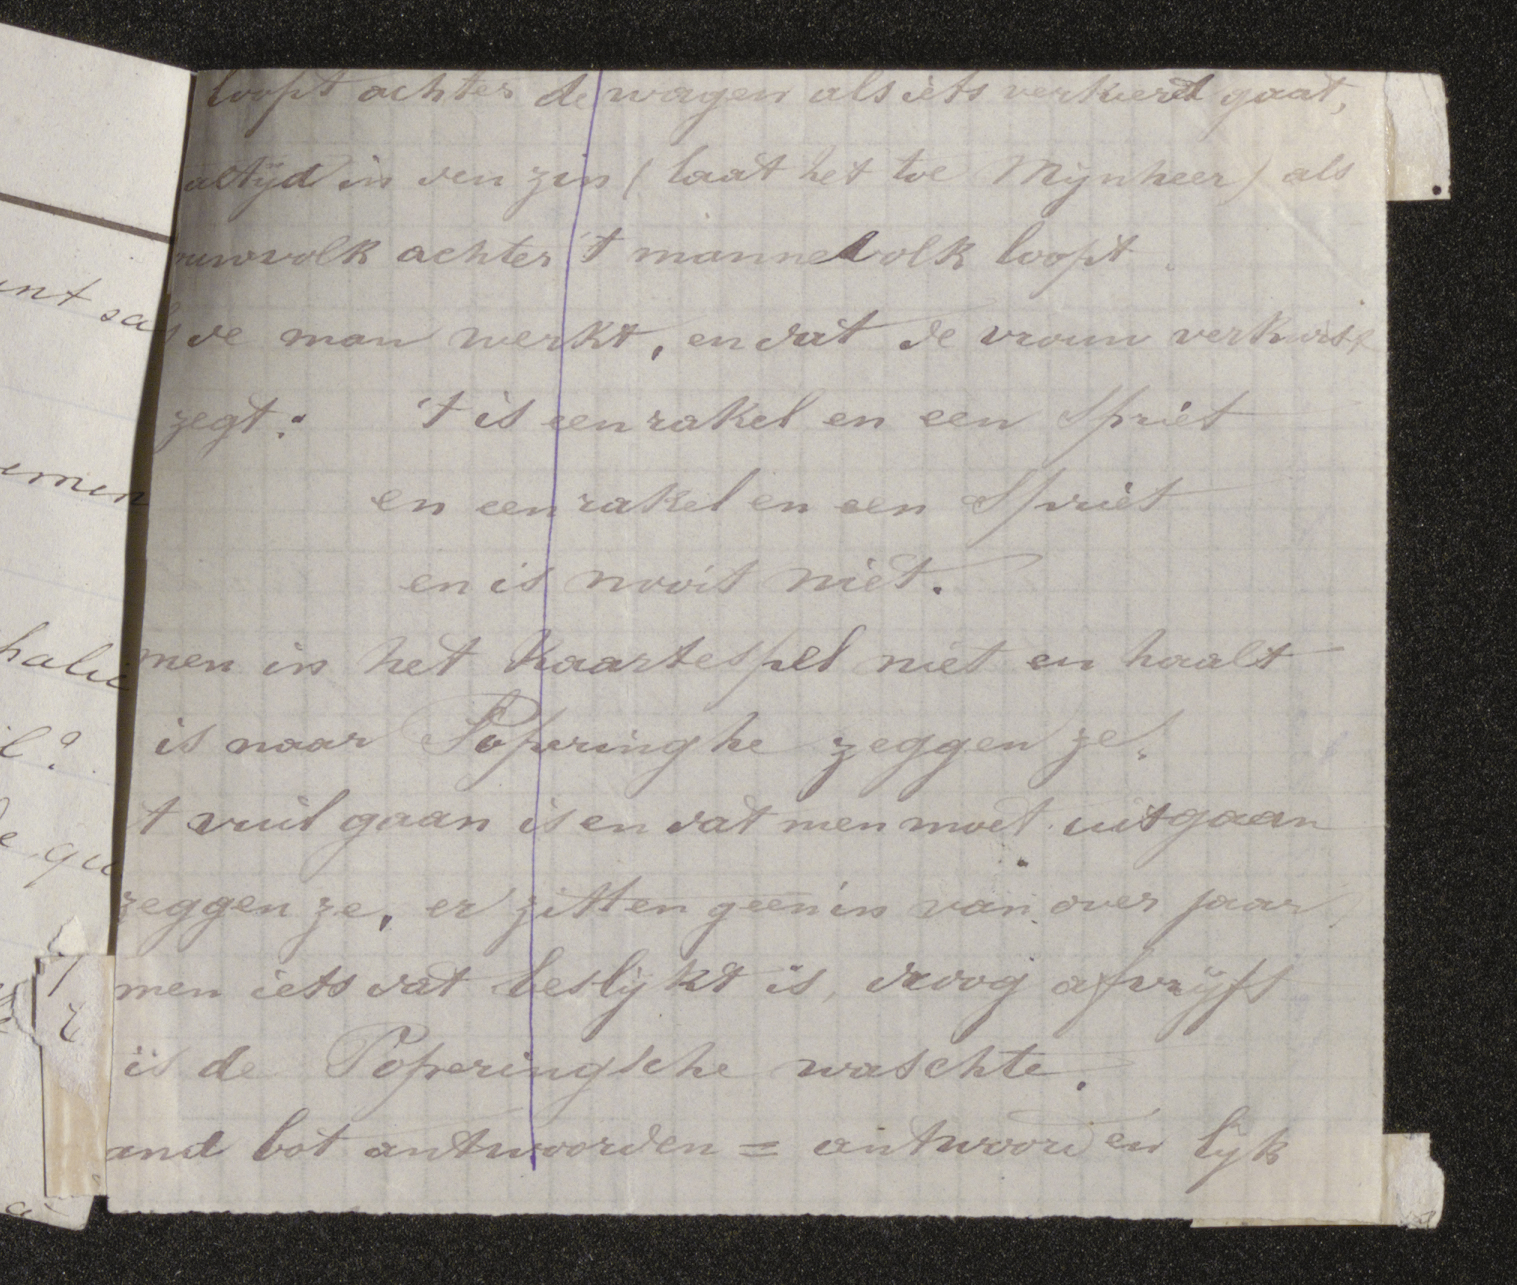 loopt achter de wagen als iets verkeerd gaat,
altijd in den zin (laat het toe Mijnheer) als
uwvolk achter 't mannevolk loopt.
de man werkt, en dat de vrouw verkwist
zegt: 't is een rakel en een Spriet
en een rakel en een Spriet
en is nooit niet.
men in het kaartespel niet en haalt
is naar Poperinghe zeggen ze.
t vuil gaan is en dat men moet uitgaan
zeggen ze, er zitten geen in van over jaar
men iets dat beslijkt is, droog afvrijft
is de Poperingsche waschte.
and bot antwoorden = antwoorden lijk